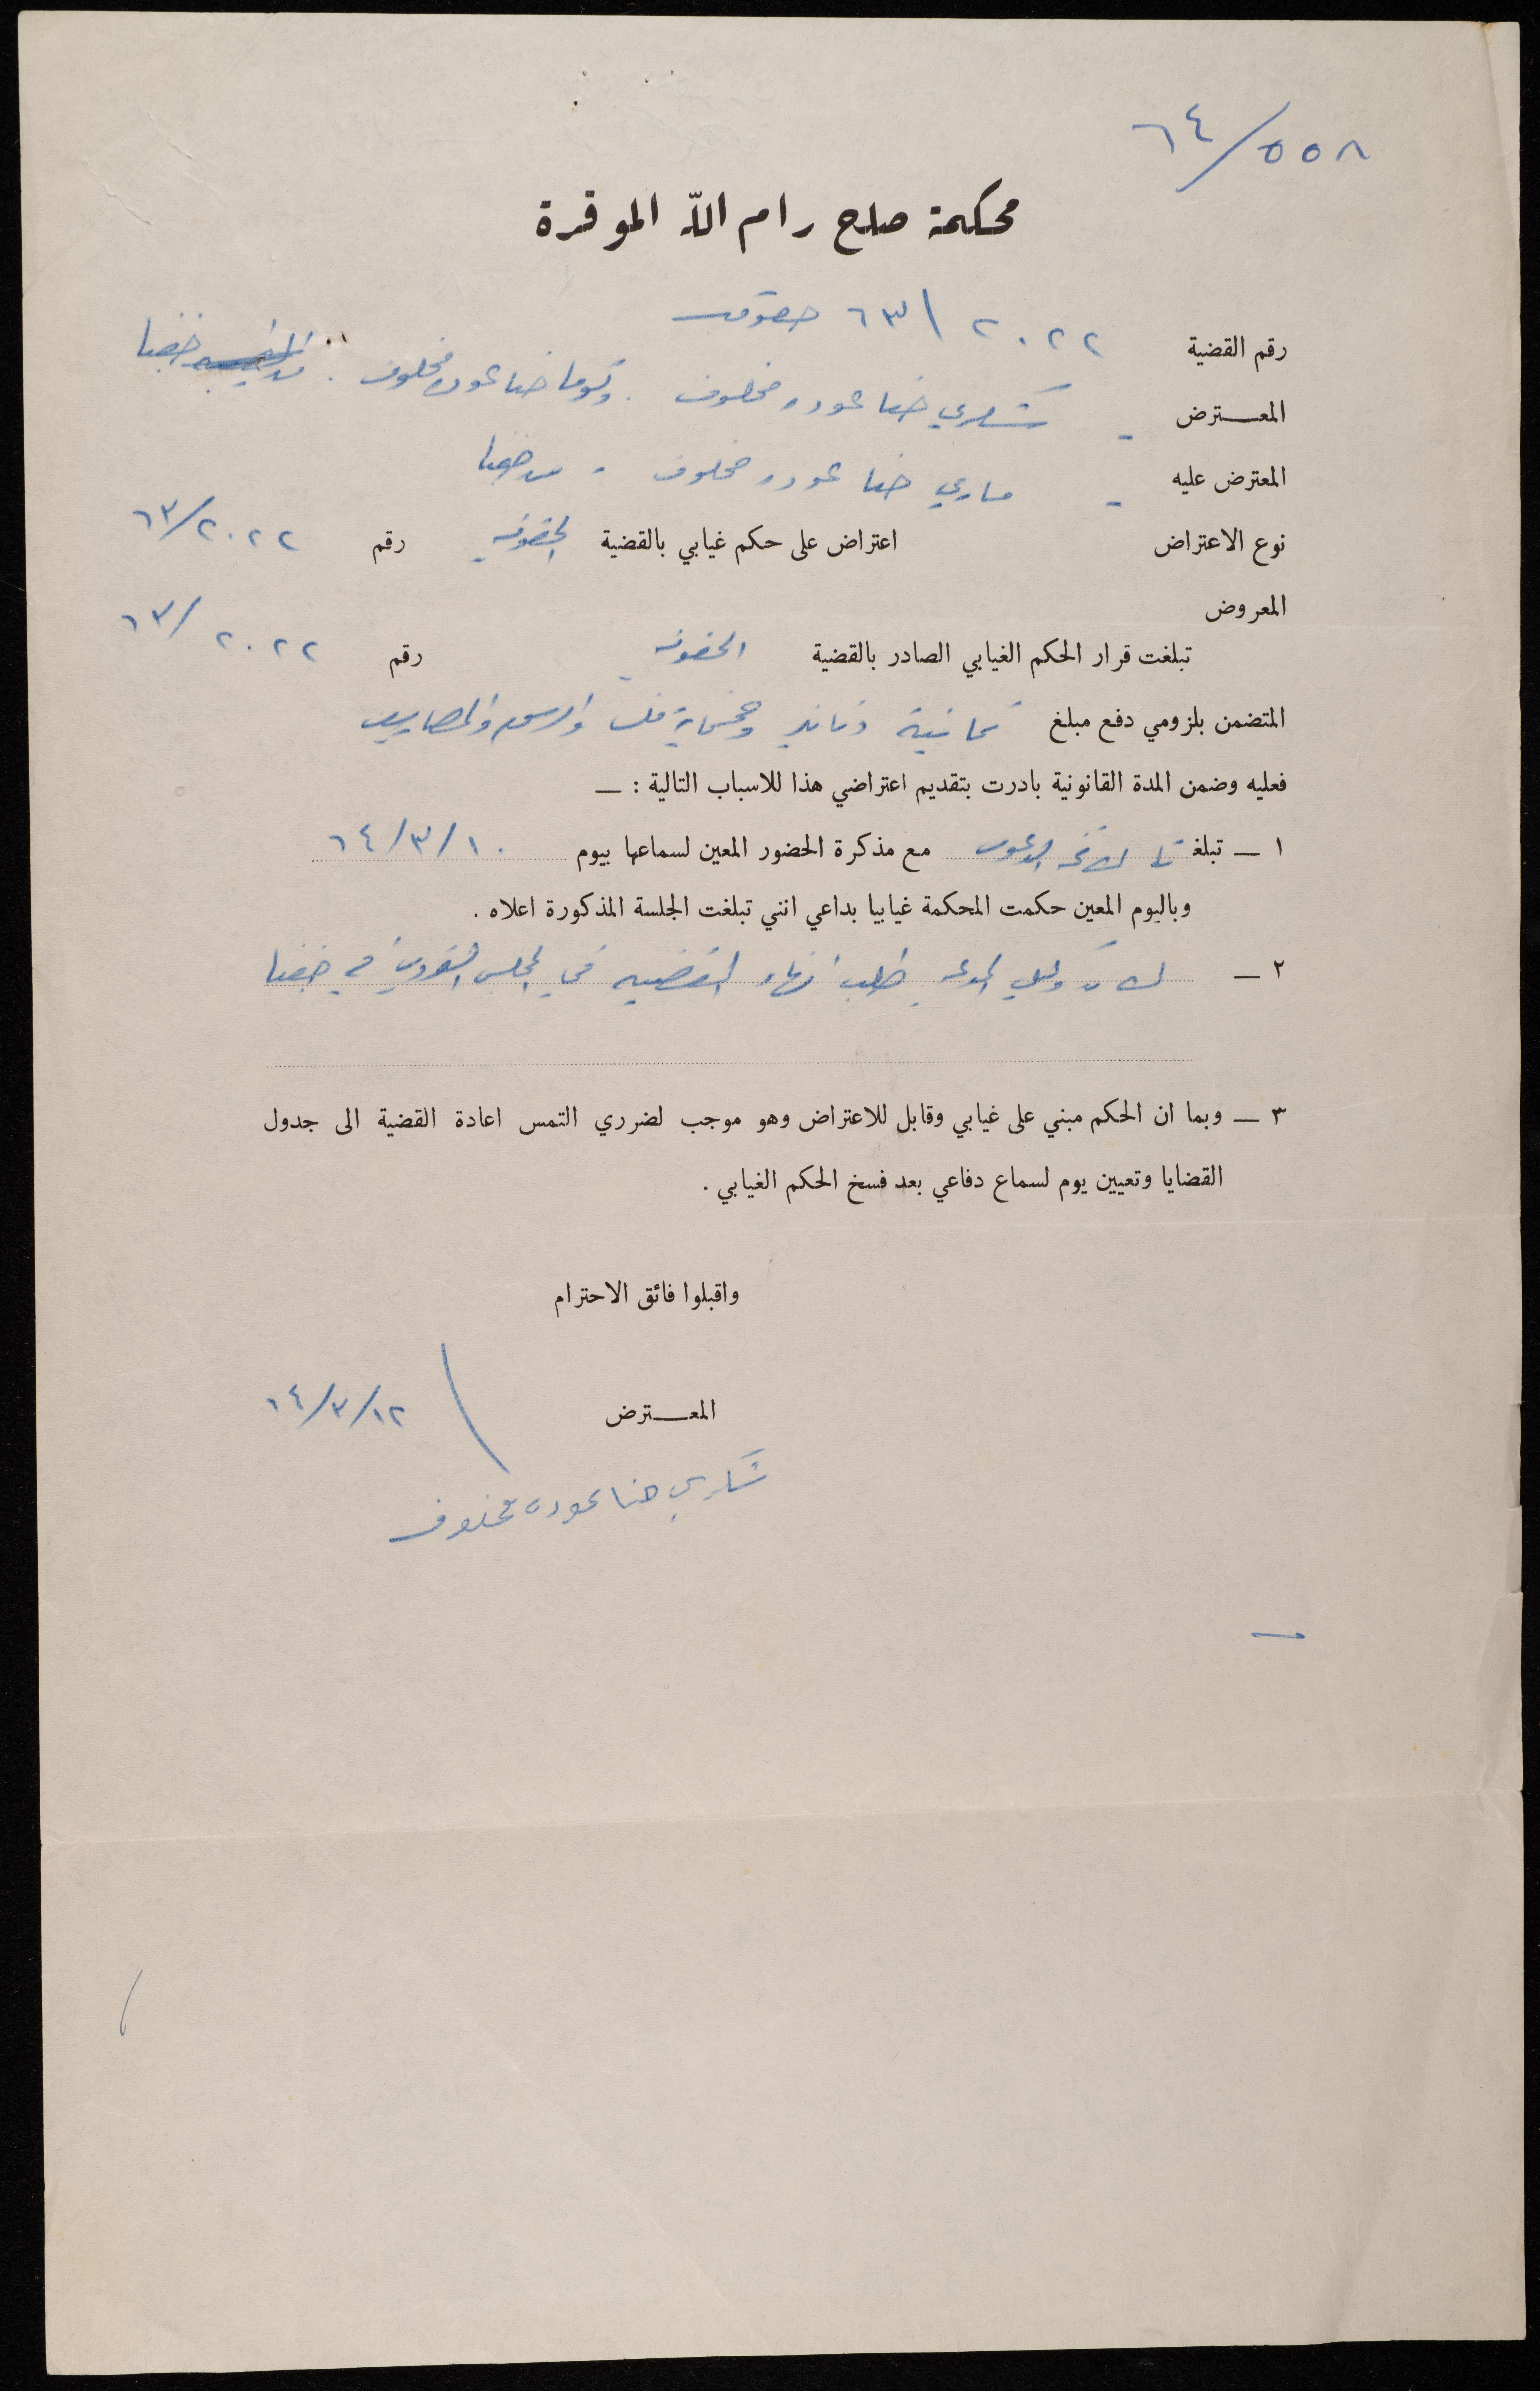 ٦٤/٥٥٨
محكمة صلح رام الله الموقرة
رقم القضية ٢٠٢٢ / ٦٣ حقوق
المعترض - شكري حنا عوده مخلوف . وتوما حنا عوده مخلوف . من جفنا
المعترض عليه - ماري حنا عوده مخلوف - من جفنا
نوع الاعتراض اعتراض على حكم غيابي بالقضية الحقوقيه رقم ٦٣/٢٠٢٢
المعروض
تبلغت قرار الحكم الغيابي الصادر بالقضية الحقوقيه رقم ٦٣/٢٠٢٢
المتضمن بلزومي دفع مبلغ ثمانية دنانير وخمسماية فلس والرسوم والمصاريف
فعليه وضمن المدة القانونية بادرت بتقديم اعتراضي هذا للاسباب التالية : —
١ — تبلغنا لائحة الدعوى مع مذكرة الحضور المعين لسماعها بيوم ٦٤/٣/١٠
وباليوم المعين حكمت المحكمة غيابيا بداعي انني تبلغت الجلسة المذكورة اعلاه .
٢ — وكيل المدعيه طلب انهاء القضيه في المجلس القروي في جفنا
٣ — وبما ان الحكم مبني على غيابي وقابل للاعتراض وهو موجب لضرري التمس اعادة القضية الى جدول
القضايا وتعيين يوم لسماع دفاعي بعد فسخ الحكم الغيابي .
واقبلوا فائق الاحترام
المعترض ٦٤/٣/١٢
شكري حنا عوده مخلوف